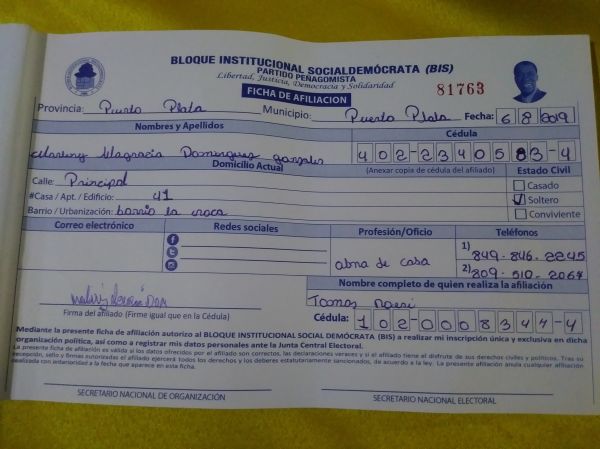 BLOQUE INSTITUCIONAL SOCIALDEMÓCRATA (BIS)
PARTIDO PEÑAGOMISTA
Libertad, Justicia, Democracia y Solidaridad
FICHA DE AFILIACION
81763
Provincia: Puerto Plata Municipio: Puerto Plata Fecha: 6 8 2019
Nombres y Apellidos Cédula
Altagracia Dominguez gonzales 402-2340583-4
Domicilio Actual (Anexar copia de cédula del afiliado) Estado Civil
Calle: Principal Casado
#Casa / Apt. / Edificio: 41 Soltero
Barrio / Urbanización: barrio la Conviviente
Correo electrónico Redes sociales Profesión/Oficio Teléfonos
1) 849-846-2245
ama de casa 2) 809-510-2067
Nombre completo de quien realiza la afiliación
Tomas
Firma del afiliado (Firme igual que en la Cédula) Cédula: 102-0008344-4
Mediante la presente ficha de afiliación autorizo al BLOQUE INSTITUCIONAL SOCIAL DEMÓCRATA (BIS) a realizar mi inscripción única y exclusiva en dicha
organización política, así como a registrar mis datos personales ante la Junta Central Electoral.
La presente ficha de afiliación es válida si los datos ofrecidos por el afiliado son correctos, las declaraciones veraces y si el afiliado tiene el disfrute de sus derechos civiles y políticos. Tras su
recepción, sello y firmas autorizadas el afiliado ejercerá todos los derechos y los deberes estatutariamente sancionados, de acuerdo a la ley. La presente afiliación anula cualquier afiliación
realizada con anterioridad a la fecha que aparece en esta ficha.
SECRETARIO NACIONAL DE ORGANIZACIÓN SECRETARIO NACIONAL ELECTORAL